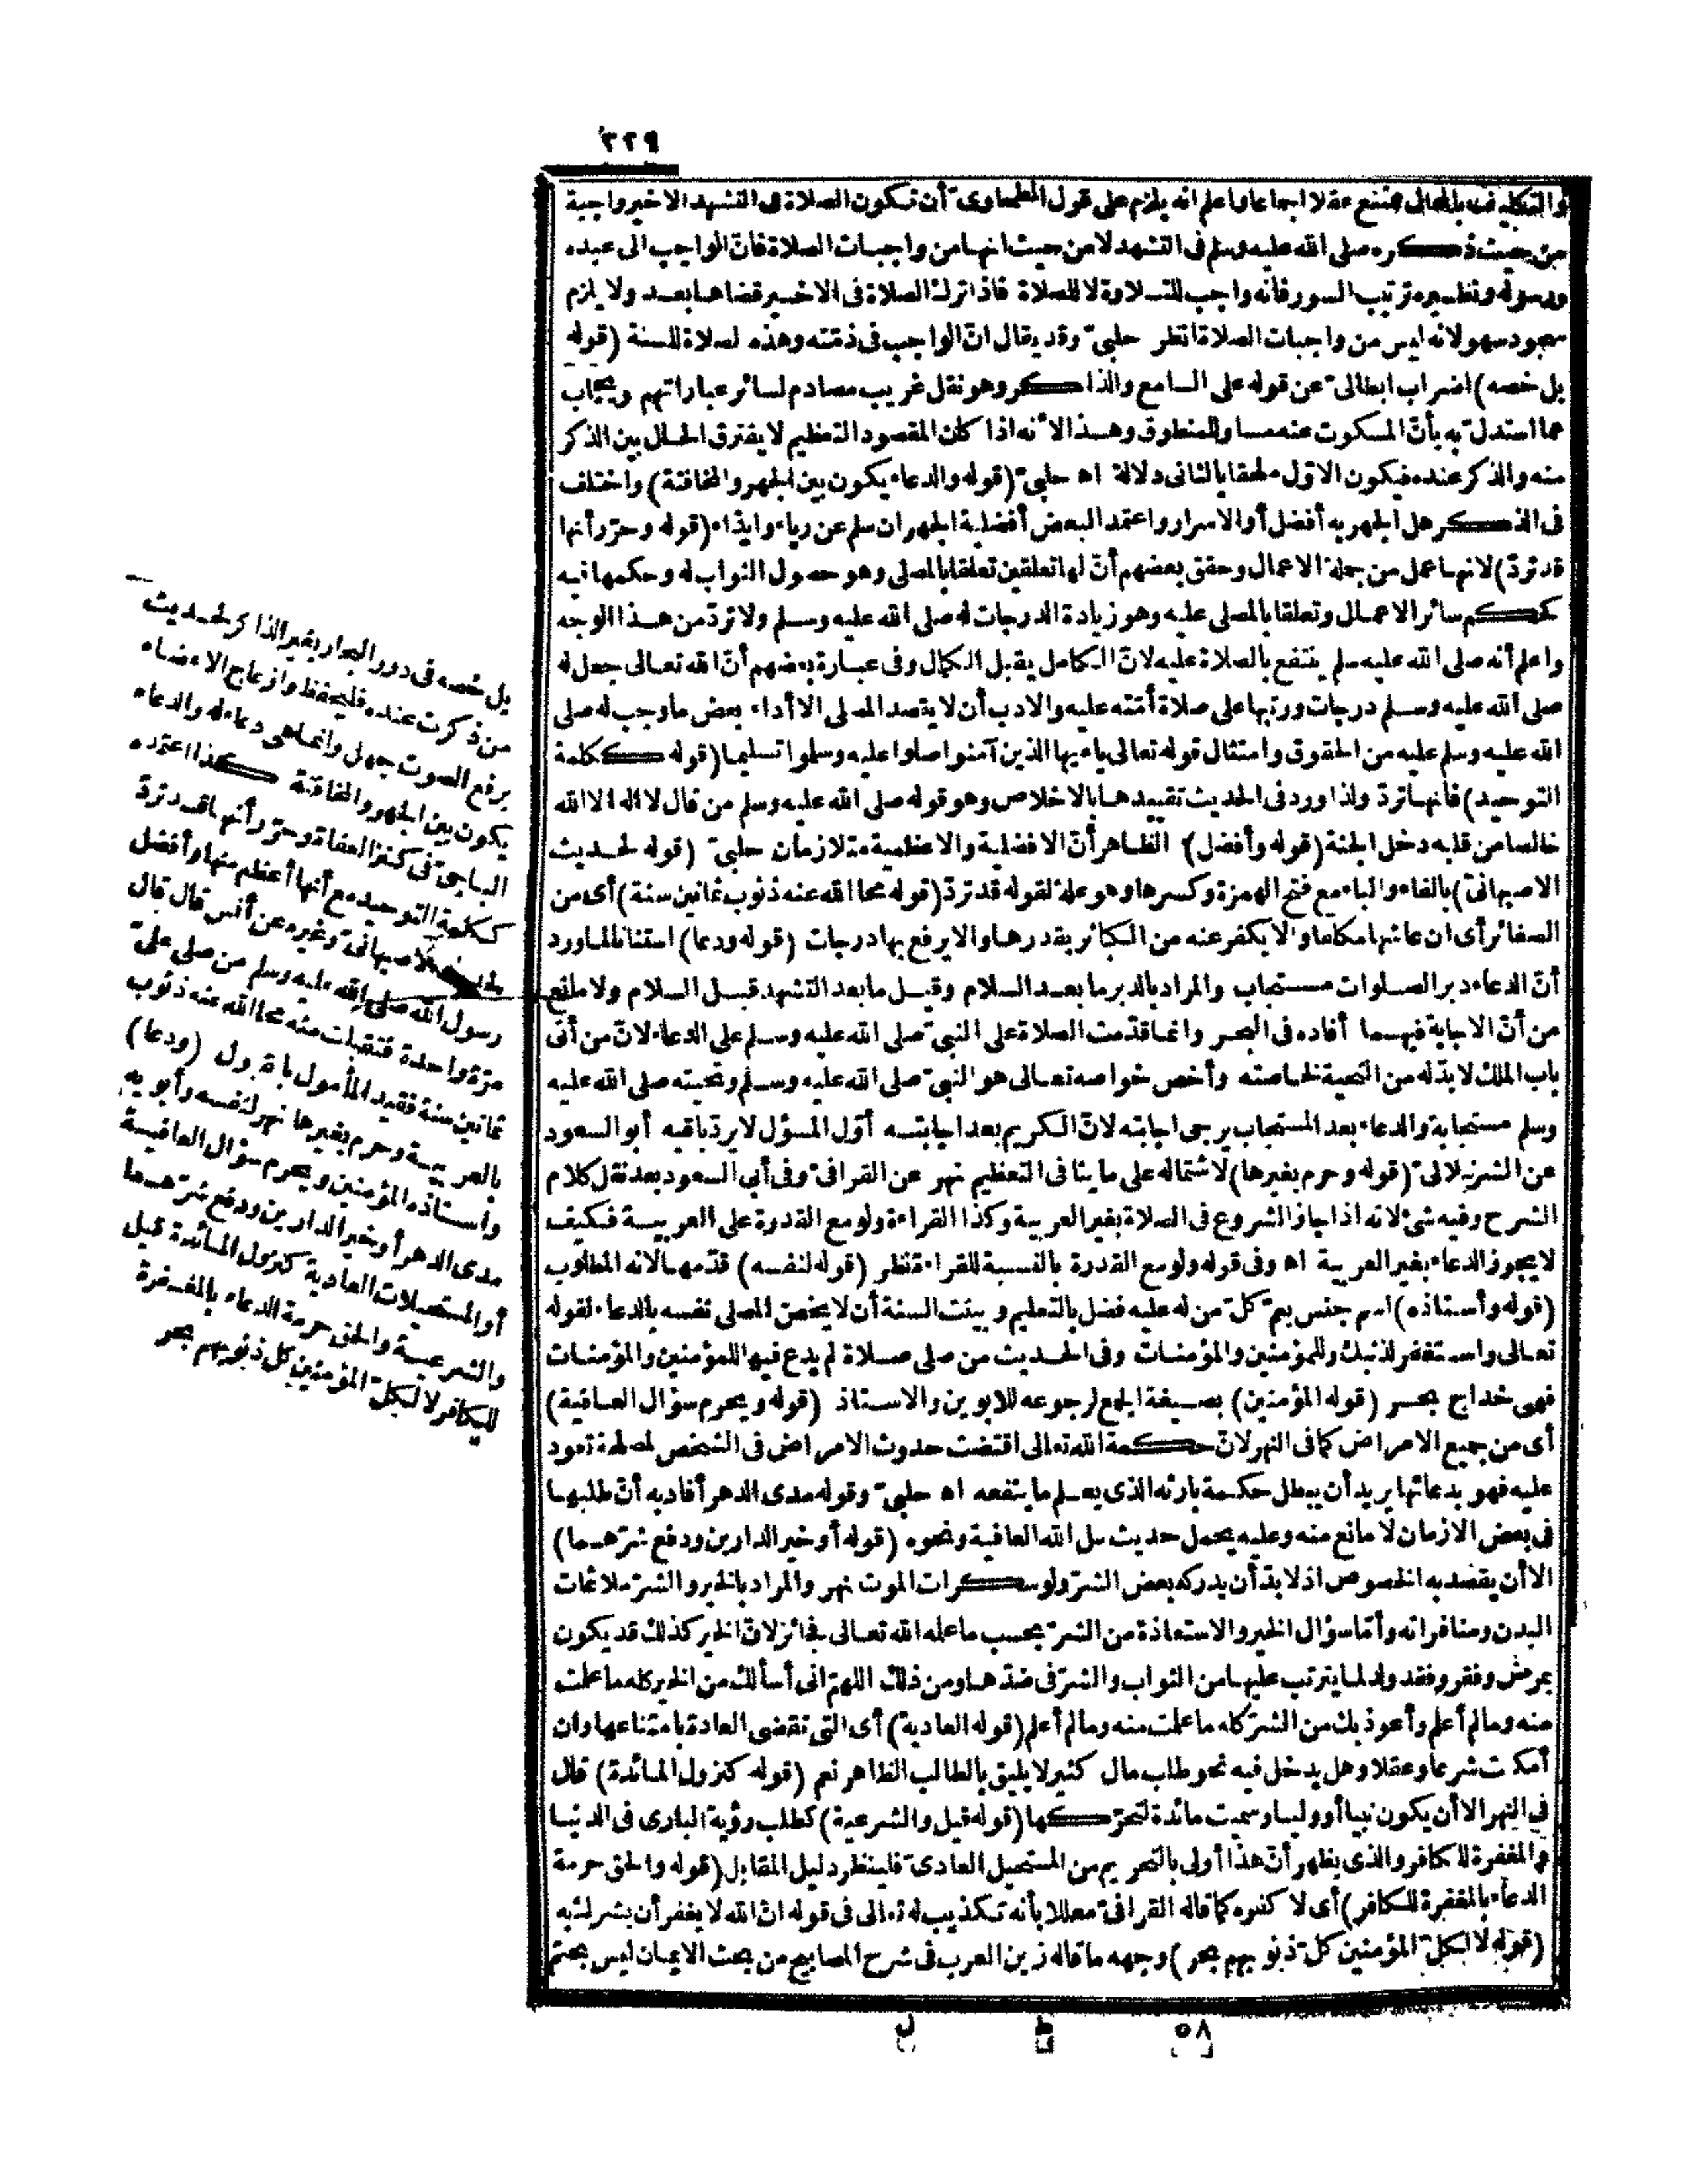 ٢٢٩
والتكليف بالمحال ممتنع عقلا اجماعا واعلم انه يلزم على قول الطحاوى أن تكون الصلاة فى التشهد الاخير واجبة
من حيث ذكره صلى الله عليه وسلم فى التشهد لا من حيث انها من واجبات الصلاة فان الواجب الى عبده
ورسوله ونظيره ترتيب السور فأنه واجب للتلاوة لا للصلاة فاذا ترك الصلاة فى الاخير قضاها بعد ولا يلزم
سجود سهو لانه ليس من واجبات الصلاة انظر حلبى وقد يقال ان الواجب فى ذمته وهذه لصلاة للسنة (قوله
بل خصه) اضراب ابطالى عن قوله على السامع والذاكر وهو نقل غريب مصادم لسائر عباراتهم ويجاب
عما استدل به بأن المسكوت عنه مساو للمنطوق وهذا لأنه اذا كان المقصود التعظيم لا يفترق الحال بين الذكر
منه والذكر عنده فيكون الاول ملحقا بالثانى دلالة اه حلبى (قوله والدعاء يكون بين الجهر والمخافتة) واختلف
فى الذكر هل الجهر به أفضل أو الاسرار واعتمد البعض أفضلية الجهر ان سلم عن رياء وايذاء (قوله وحرر أنها
قد ترد) لانها عمل من جملة الاعمال وحقق بعضهم أن لها تعلقين تعلقا بالمصلى وهو حصول الثواب له وحكمها فيه
كحكم سائر الاعمال وتعلقا بالمصلى عليه وهو زيادة الدرجات له صلى الله عليه وسلم ولا ترد من هذا الوجه
واعلم أنه صلى الله عليه سلم ينتفع بالصلاة عليه لان الكامل يقبل الكمال وفى عبارة بعضهم أن الله تعالى جعل له
صلى الله عليه وسلم درجات ورتبها على صلاة أمته عليه والادب أن لا يقصد المصلى الا أداء بعض ما وجب له صلى
الله عليه وسلم عليه من الحقوق وامتثال قوله تعالى يا أيها الذين آمنوا صلوا عليه وسلموا تسليما (قوله ككلمة
التوحيد) فأنها ترد ولذا ورد فى الحديث تقييدها بالاخلاص وهو قوله صلى الله عليه وسلم من قال لا اله الا الله
خالصا من قلبه دخل الجنة (قوله وأفضل) الظاهر أن الافضلية والاعظمية متلازمان حلبى (قوله لحديث
الاصبهانى) بالفاء والباء مع فتح الهمزة وكسرها وهو علة لقوله قد ترد (قوله محا الله عنه ذنوب ثمانين سنة) أى من
الصغائر أى ان عاشها مكلفا والا يكفر عنه من الكبائر بقدرها والا يرفع بها درجات (قوله ودعا) استنانا لما ورد
أن الدعاء دبر الصلوات مستجاب والمراد بالدبر ما بعد السلام وقيل ما بعد التشهد قبل السلام ولا مانع
من أن الاجابة فيهما أفاده فى البحر وانما قدمت الصلاة على النبى صلى الله عليه وسلم على الدعاء لان من أتى
باب الملك لا بد له من التحية لخاصته وأخص خواصه تعالى هو النبى صلى الله عليه وسلم وتحيته صلى الله عليه
وسلم مستجابة والدعاء بعد المستجاب يرجى اجابته لان الكريم بعد اجابته أول المسؤل لا يرد باقيه أبو السعود
عن الشرنبلالى (قوله وحرم بغيرها) لاشتماله على ما ينافى التعظيم نهر عن القرافى وفى أبى السعود بعد نقل كلام
الشرح وفيه شئ لانه اذا جاز الشروع فى الصلاة بغير العربية وكذا القراءة ولو مع القدرة على العربية فكيف
لا يجوز الدعاء بغير العربية اه وفى قوله ولو مع القدرة بالنسبة للقراءة نظر (قوله لنفسه) قدمها لانه المطلوب
(قوله وأستاذه) اسم جنس يعم كل من له عليه فضل بالتعليم وبينت السنة أن لا يخص المصلى نفسه بالدعاء لقوله
تعالى واستغفر لذنبك وللمؤمنين والمؤمنات وفى الحديث من صلى صلاة لم يدع فيها للمؤمنين والمؤمنات
فهى خداج بحر (قوله المؤمنين) بصيغة الجمع لرجوعه للابوين والاستاذ (قوله ويحرم سؤال العافية)
أى من جميع الامراض كما فى النهر لان حكمة الله تعالى اقتضت حدوث الامراض فى الشخص لمصلحة تعود
عليه فهو بدعائها يريد أن يبطل حكمة بارئه الذى يعلم ما ينفعه اه حلبى وقوله مدى الدهر أفاد به أن طلبها
فى بعض الازمان لا مانع منه وعليه يحمل حديث سل الله العافية ونحوه (قوله أو خير الدارين ودفع شرهما)
الا أن يقصد به الخصوص اذ لا بد أن يدركه بعض الشر ولو سكرات الموت نهر والمراد بالخير والشر ملائمات
البدن ومنافراته وأما سؤال الخير والاستعاذة من الشر بحسب ما علمه الله تعالى فجائز لان الخير كذلك قد يكون
بمرض وفقر وفقد ولد لما يترتب عليها من الثواب والشر فى ضدها ومن ذلك اللهم انى أسألك من الخير كله ما علمت
منه وما لم أعلم وأعوذ بك من الشر كله ما علمت منه وما لم أعلم (قوله العادية) أى التى تقضى العادة بامتناعها وان
أمكنت شرعا وعقلا وهل يدخل فيه نحو طلب مال كثير لا يليق بالطالب الظاهر نعم (قوله كنزول المائدة) قال
فى النهر الا أن يكون نبيا أو وليا وسميت مائدة لتحركها (قوله قيل والشرعية) كطلب رؤية البارى فى الدنيا
والمغفرة للكافر والذى يظهر أن هذا أولى بالتحريم من المستحيل العادى فلينظر دليل المقابل (قوله والحق حرمة
الدعاء بالمغفرة للكافر) أى لا كفره كما قاله القرافى معللا بأنه تكذيب له تعالى فى قوله ان الله لا يغفر أن يشرك به
(قوله لا لكل المؤمنين كل ذنوبهم بحر) وجهه ما قاله زين العرب فى شرح المصابيح من بحث الايمان ليس بحتم
بل خصه فى درر البحار بغير الذاكر لحديث
من ذكرت عنده فليحفظ وازعاج الاعضاء
برفع الصوت جهل وانما هى دعاء له والدعاء
يكون بين الجهر والمخافتة كذا اعتمده
الباجى فى كنز العفاة وحرر أنها قد ترد
ككلمة التوحيد مع أنها أعظم منها وأفضل
لحديث الاصبهانى وغيره عن أنس قال قال
رسول الله صلى الله عليه وسلم من صلى على
مرة واحدة فتقبلت منه محا الله عنه ذنوب
ثمانين سنة فقيد المأمول بالقبول (ودعا)
بالعربية وحرم بغيرها نهر لنفسه وأبويه
وأستاذه المؤمنين ويحرم سؤال العافية
مدى الدهر أو خير الدارين ودفع شرهما
أو المستحيلات العادية كنزول المائدة قيل
والشرعية والحق حرمة الدعاء بالمغفرة
للكافر لا لكل المؤمنين كل ذنوبهم بحر
٥٨ ط ل